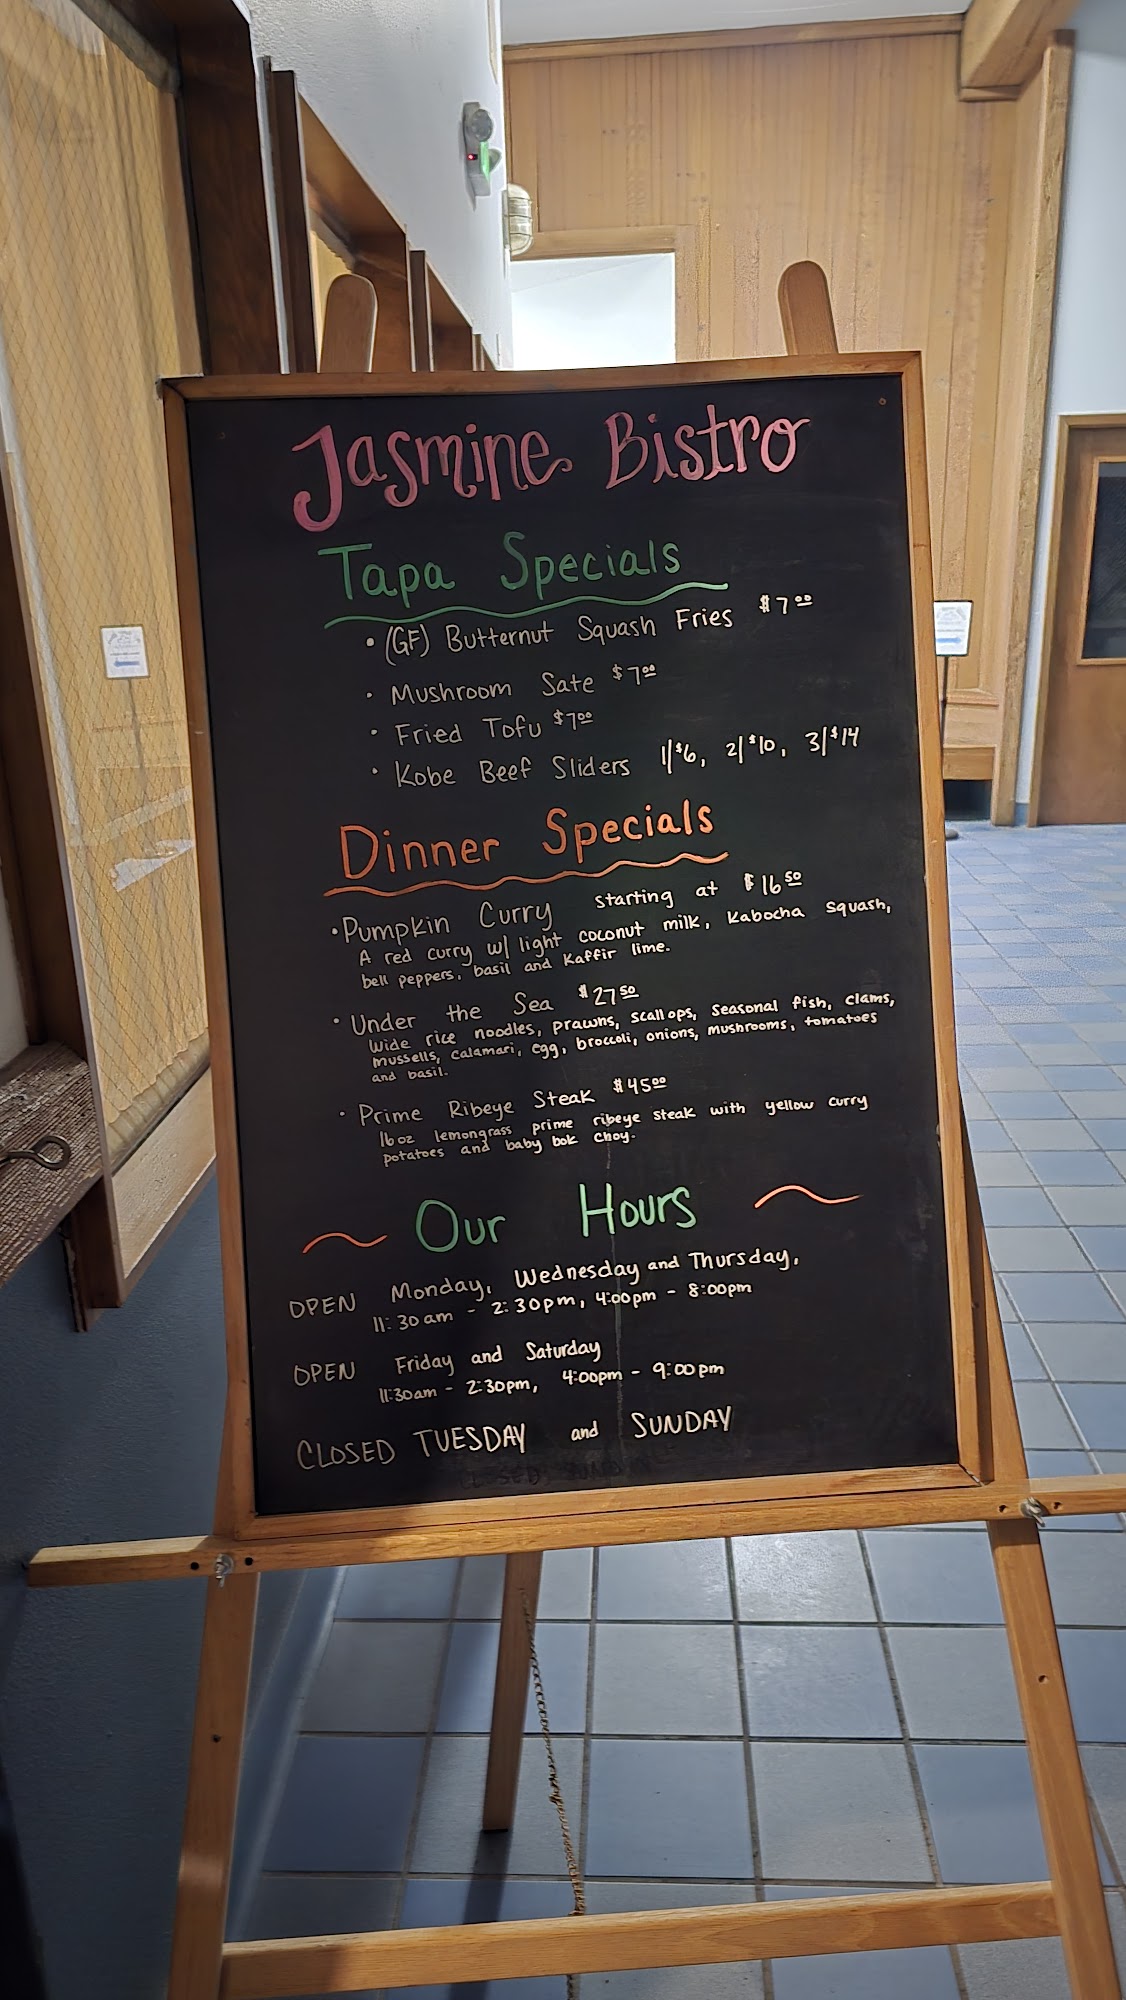 Jasmine Bistro
Tapa Specials
• (GF) Butternut Squash Fries $7.00
• Mushroom Sate $7.00
• Fried Tofu $7.00
• Kobe Beef Sliders 1/$6, 2/$10, 3/$14
Dinner Specials
• Pumpkin Curry starting at $16.50
A red curry w/ light coconut milk, Kabocha squash,
bell peppers, basil and Kaffir lime.
• Under the Sea $27.50
Wide rice noodles, prawns, scallops, seasonal fish, clams,
mussells, calamari, egg, broccoli, onions, mushrooms, tomatoes
and basil.
• Prime Ribeye Steak $45.00
16 oz lemongrass prime ribeye steak with yellow curry
potatoes and baby bok choy.
~ Our Hours ~
OPEN Monday, Wednesday and Thursday,
11:30am - 2:30pm, 4:00pm - 8:00pm
OPEN Friday and Saturday
11:30am - 2:30pm, 4:00pm - 9:00pm
CLOSED TUESDAY and SUNDAY